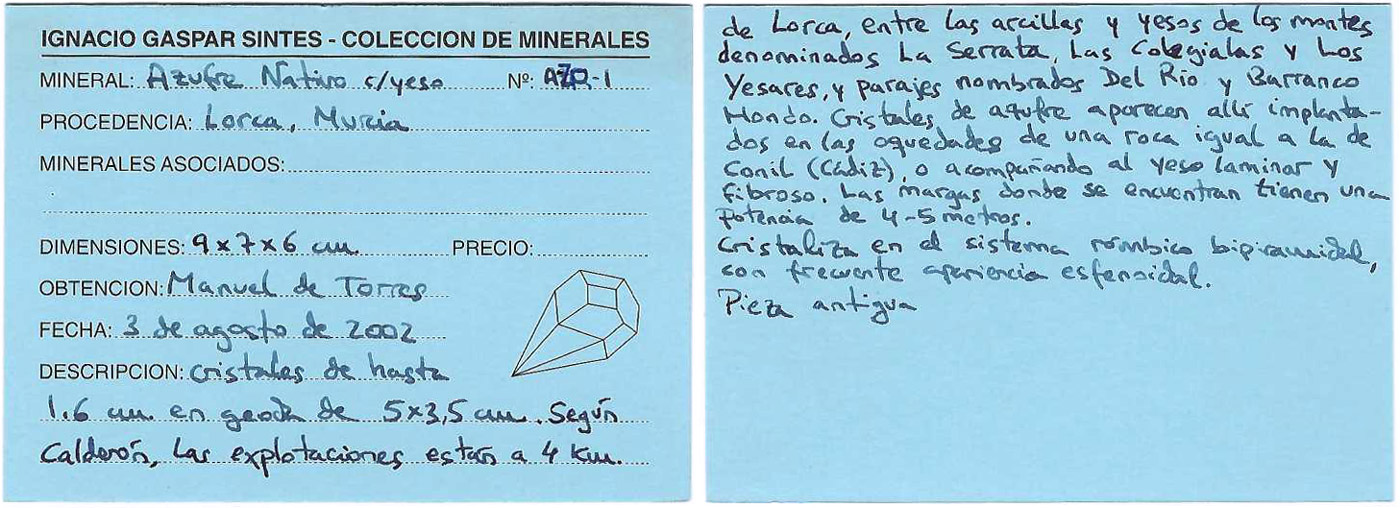 IGNACIO GASPAR SINTES - COLECCION DE MINERALES
MINERAL: Azufre Nativo c/yeso Nº: AZR-1
PROCEDENCIA: Lorca, Murcia
MINERALES ASOCIADOS:
DIMENSIONES: 9x7x6 cm PRECIO:
OBTENCION: Manuel de Torres
FECHA: 3 de agosto de 2002
DESCRIPCION: cristales de hasta
1.6 cm. en geoda de 5x3,5 cm. Según
Calderón, las explotaciones están a 4 Km.
de Lorca, entre las arcillas y yesos de los montes
denominados La Serrata, Las Colegialas y Los
Yesares, y parajes nombrados Del Río y Barranco
Hondo. Cristales de azufre aparecen allí implanta-
dos en las oquedades de una roca igual a la de
Conil (Cádiz), o acompañando al yeso laminar y
fibroso. Las margas donde se encuentran tienen una
potencia de 4-5 metros.
Cristaliza en el sistema rómbico bipiramidal,
con frecuente apariencia esfenoidal.
Pieza antigua